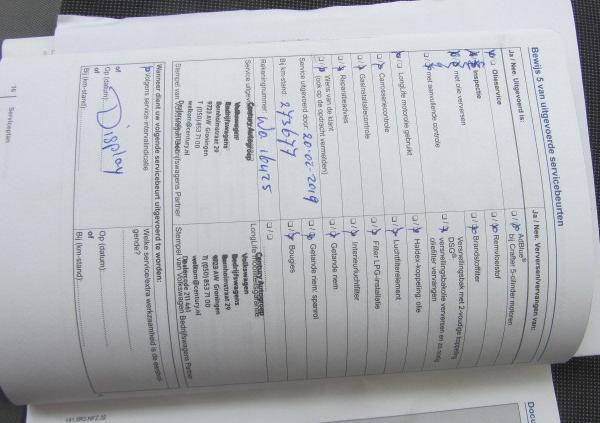 Bewijs 5 van uitgevoerde servicebeurten
Ja / Nee Uitgevoerd is:
Olieservice
Inspectie
met olie verversen
met aanvullende controle
LongLife motorolie gebruikt
Carrosseriecontrole
Gasinstallatiecontrole
Reparatieadvies
Wens van de klant
(ook op de opdracht vermelden)
Service uitgevoerd door: 20-02-2019
Bij km-stand 273677
Rekeningnummer
Service uitgevoerd
Century Autogroep
Volkswagen
Bedrijfswagens
Bornholmstraat 29
9723 AW Groningen
T (050) 853 71 00
welkom@century.nl
Stempel van Volkswagen Bedrijfswagens Partner
Wanneer dient uw volgende servicebeurt uitgevoerd te worden:
Volgens service-intervalindicatie
of
Op (datum):
of
Bij (km-stand):
Display
16 Serviceplan
Ja / Nee Verversen/vervangen van:
AdBlue®
bij Crafter 5-cilinder motoren
Remvloeistof
Brandstoffilter
Versnellingsbak met 2-voudige koppeling
DSG®:
versnellingsbakolie verversen en zo nodig
oliefilter vervangen
Haldex-koppeling: olie
Luchtfilterelement
Filter LPG-installatie
Interieurluchtfilter
Getande riem
Getande riem: spanrol
Bougies
Century Autogroep
Volkswagen
Bedrijfswagens
Bornholmstraat 29
9723 AW Groningen
T (050) 853 71 00
welkom@century.nl
Stempel van Volkswagen Bedrijfswagens Partner
Welke service/extra werkzaamheid is de eerstvol-
gende?
Op (datum):
of
Bij (km-stand):
141.5R3.NFZ.32
Docu